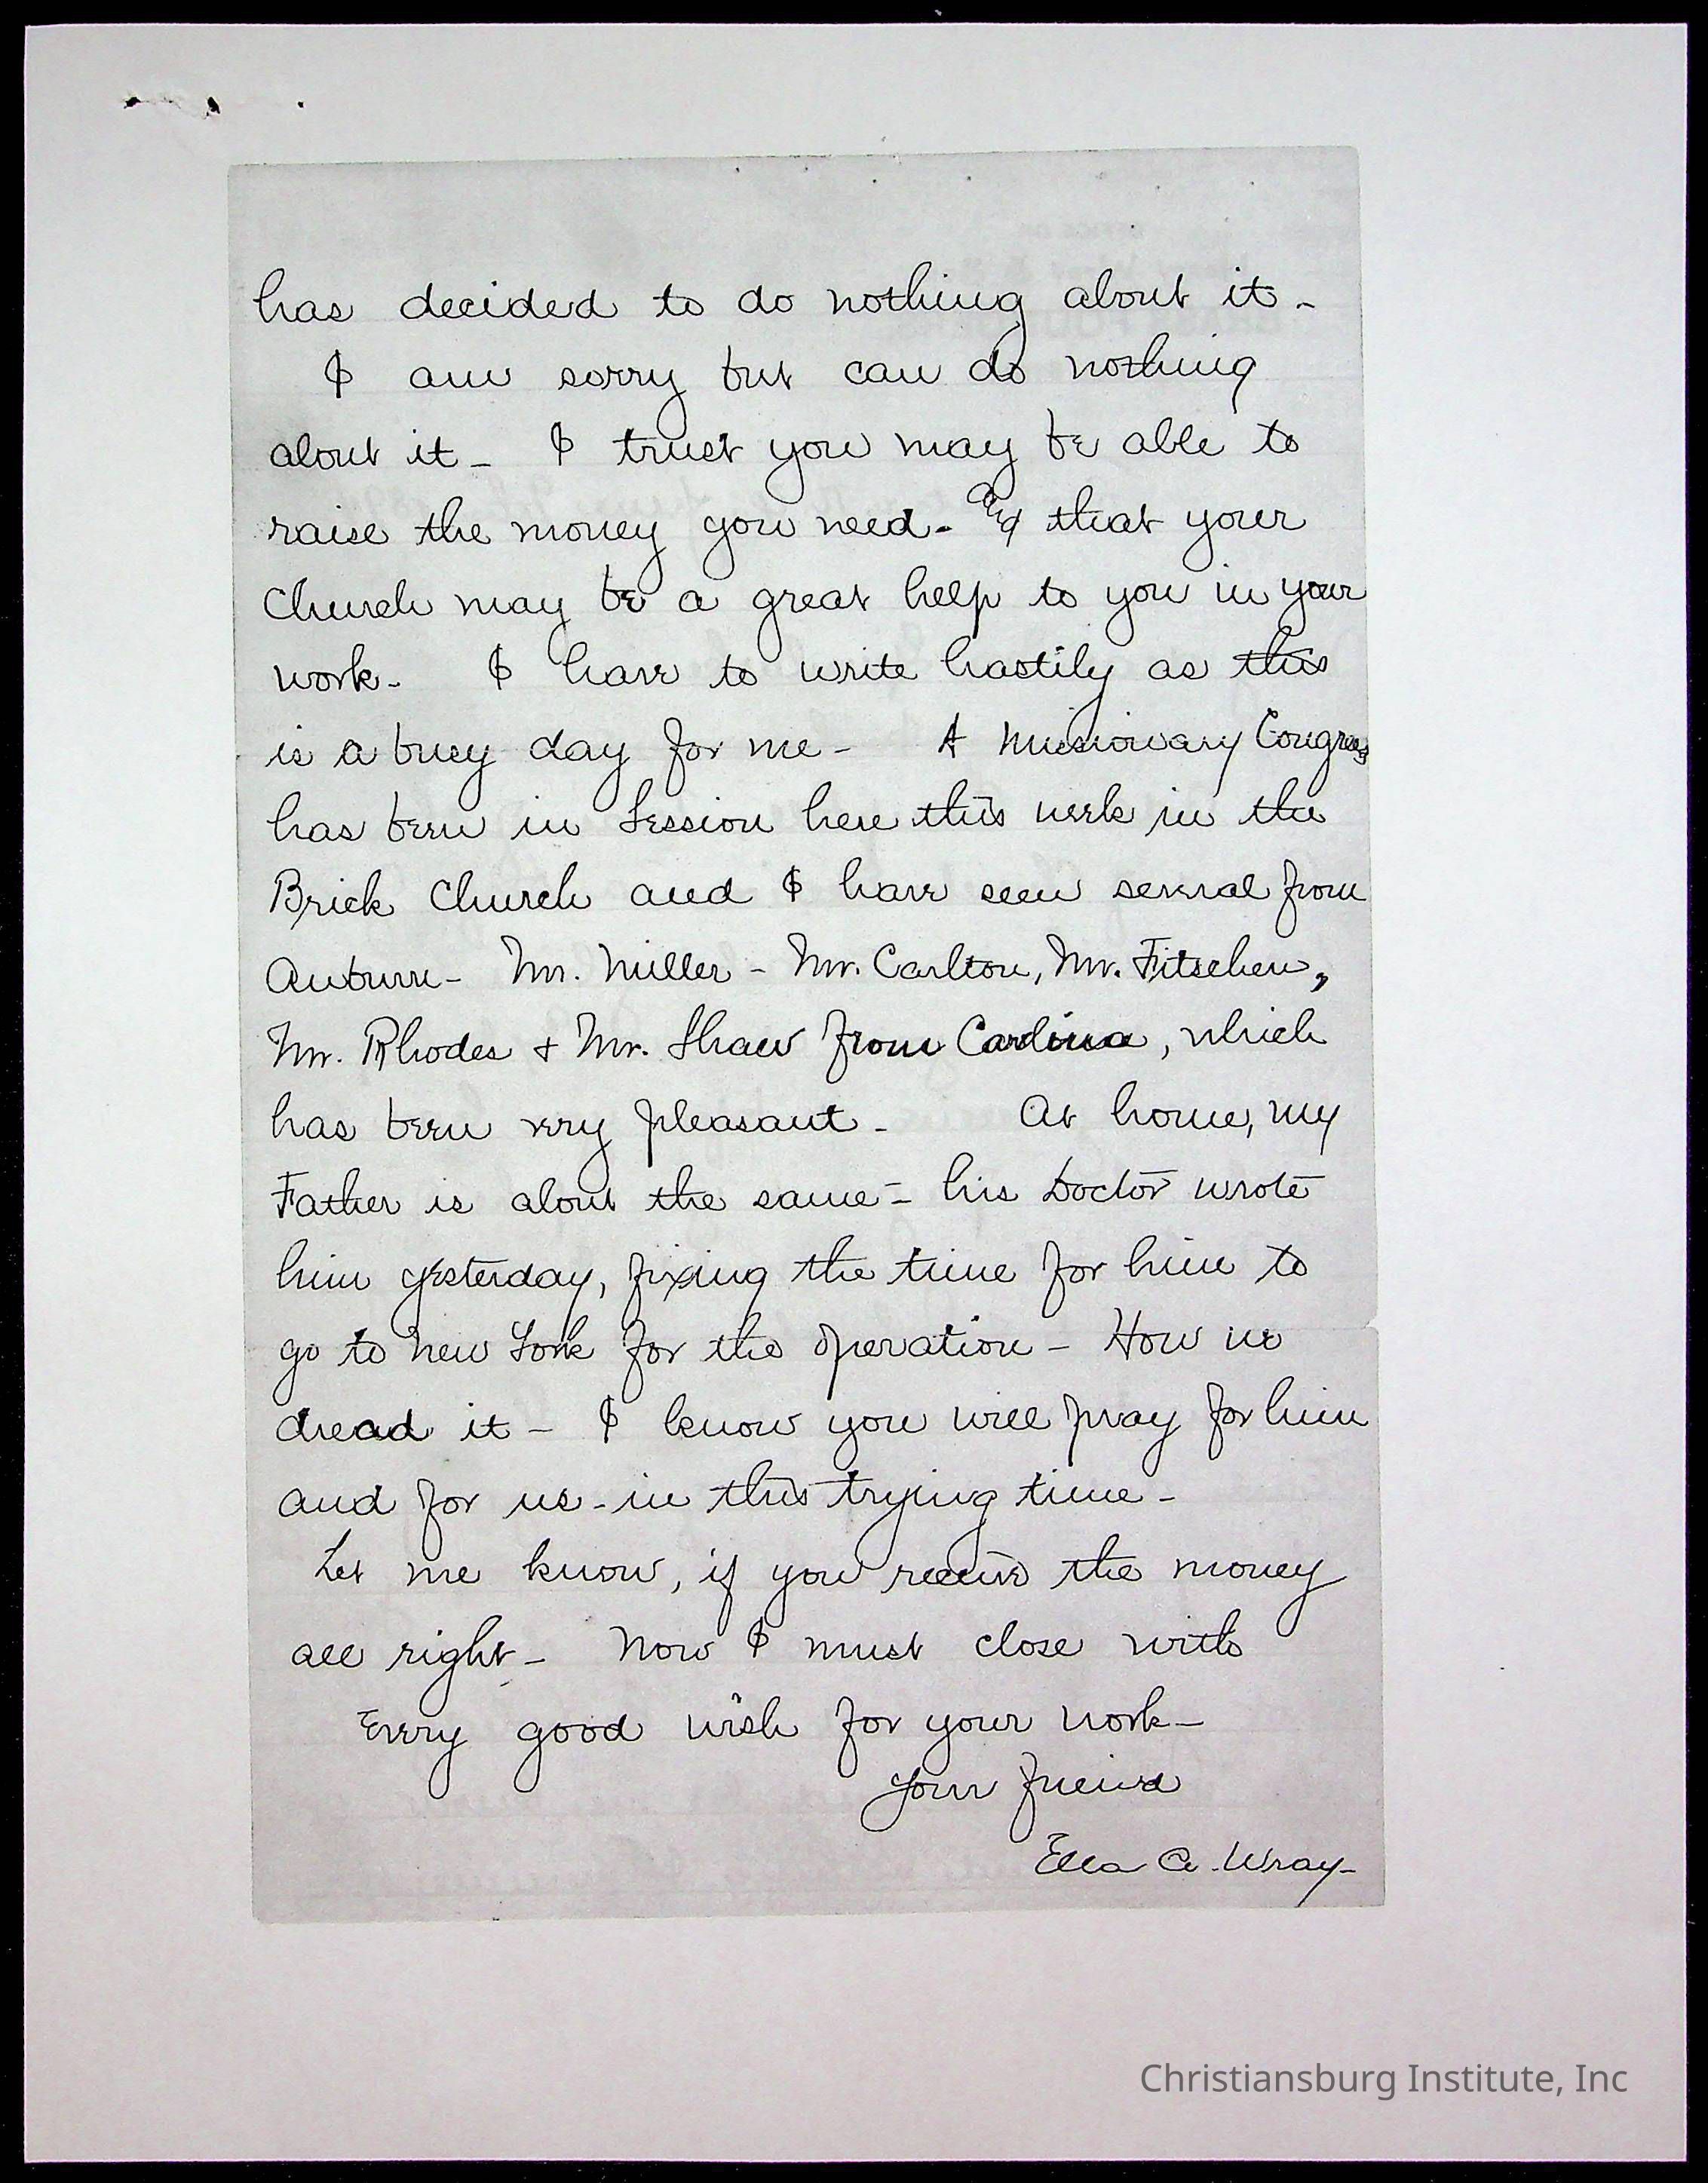 has decided to do nothing about it -
I am sorry but can do nothing
about it - I trust you may be able to
raise the money you need - And that your
Church may be a great help to you in your
work - I have to write hastily as this
is a busy day for me - A Missionary Congress
has been in Session here this week in the
Brick Church and I have seen several from
Auburn - Mr. Miller - Mr. Carlton, Mr. Fitschen,
Mr. Rhodes + Mr. Shaw from Carolina, which
has been very pleasant - At home, my
Father is about the same - his Doctor wrote
him yesterday, fixing the time for him to
go to New York for the operation - How we
dread it - I know you will pray for him
and for us - in this trying time -
Let me know, if you receive the money
all right - Now I must close with
Every good wish for your work -
Your friend
Ella A. Wray -
Christiansburg Institute, Inc